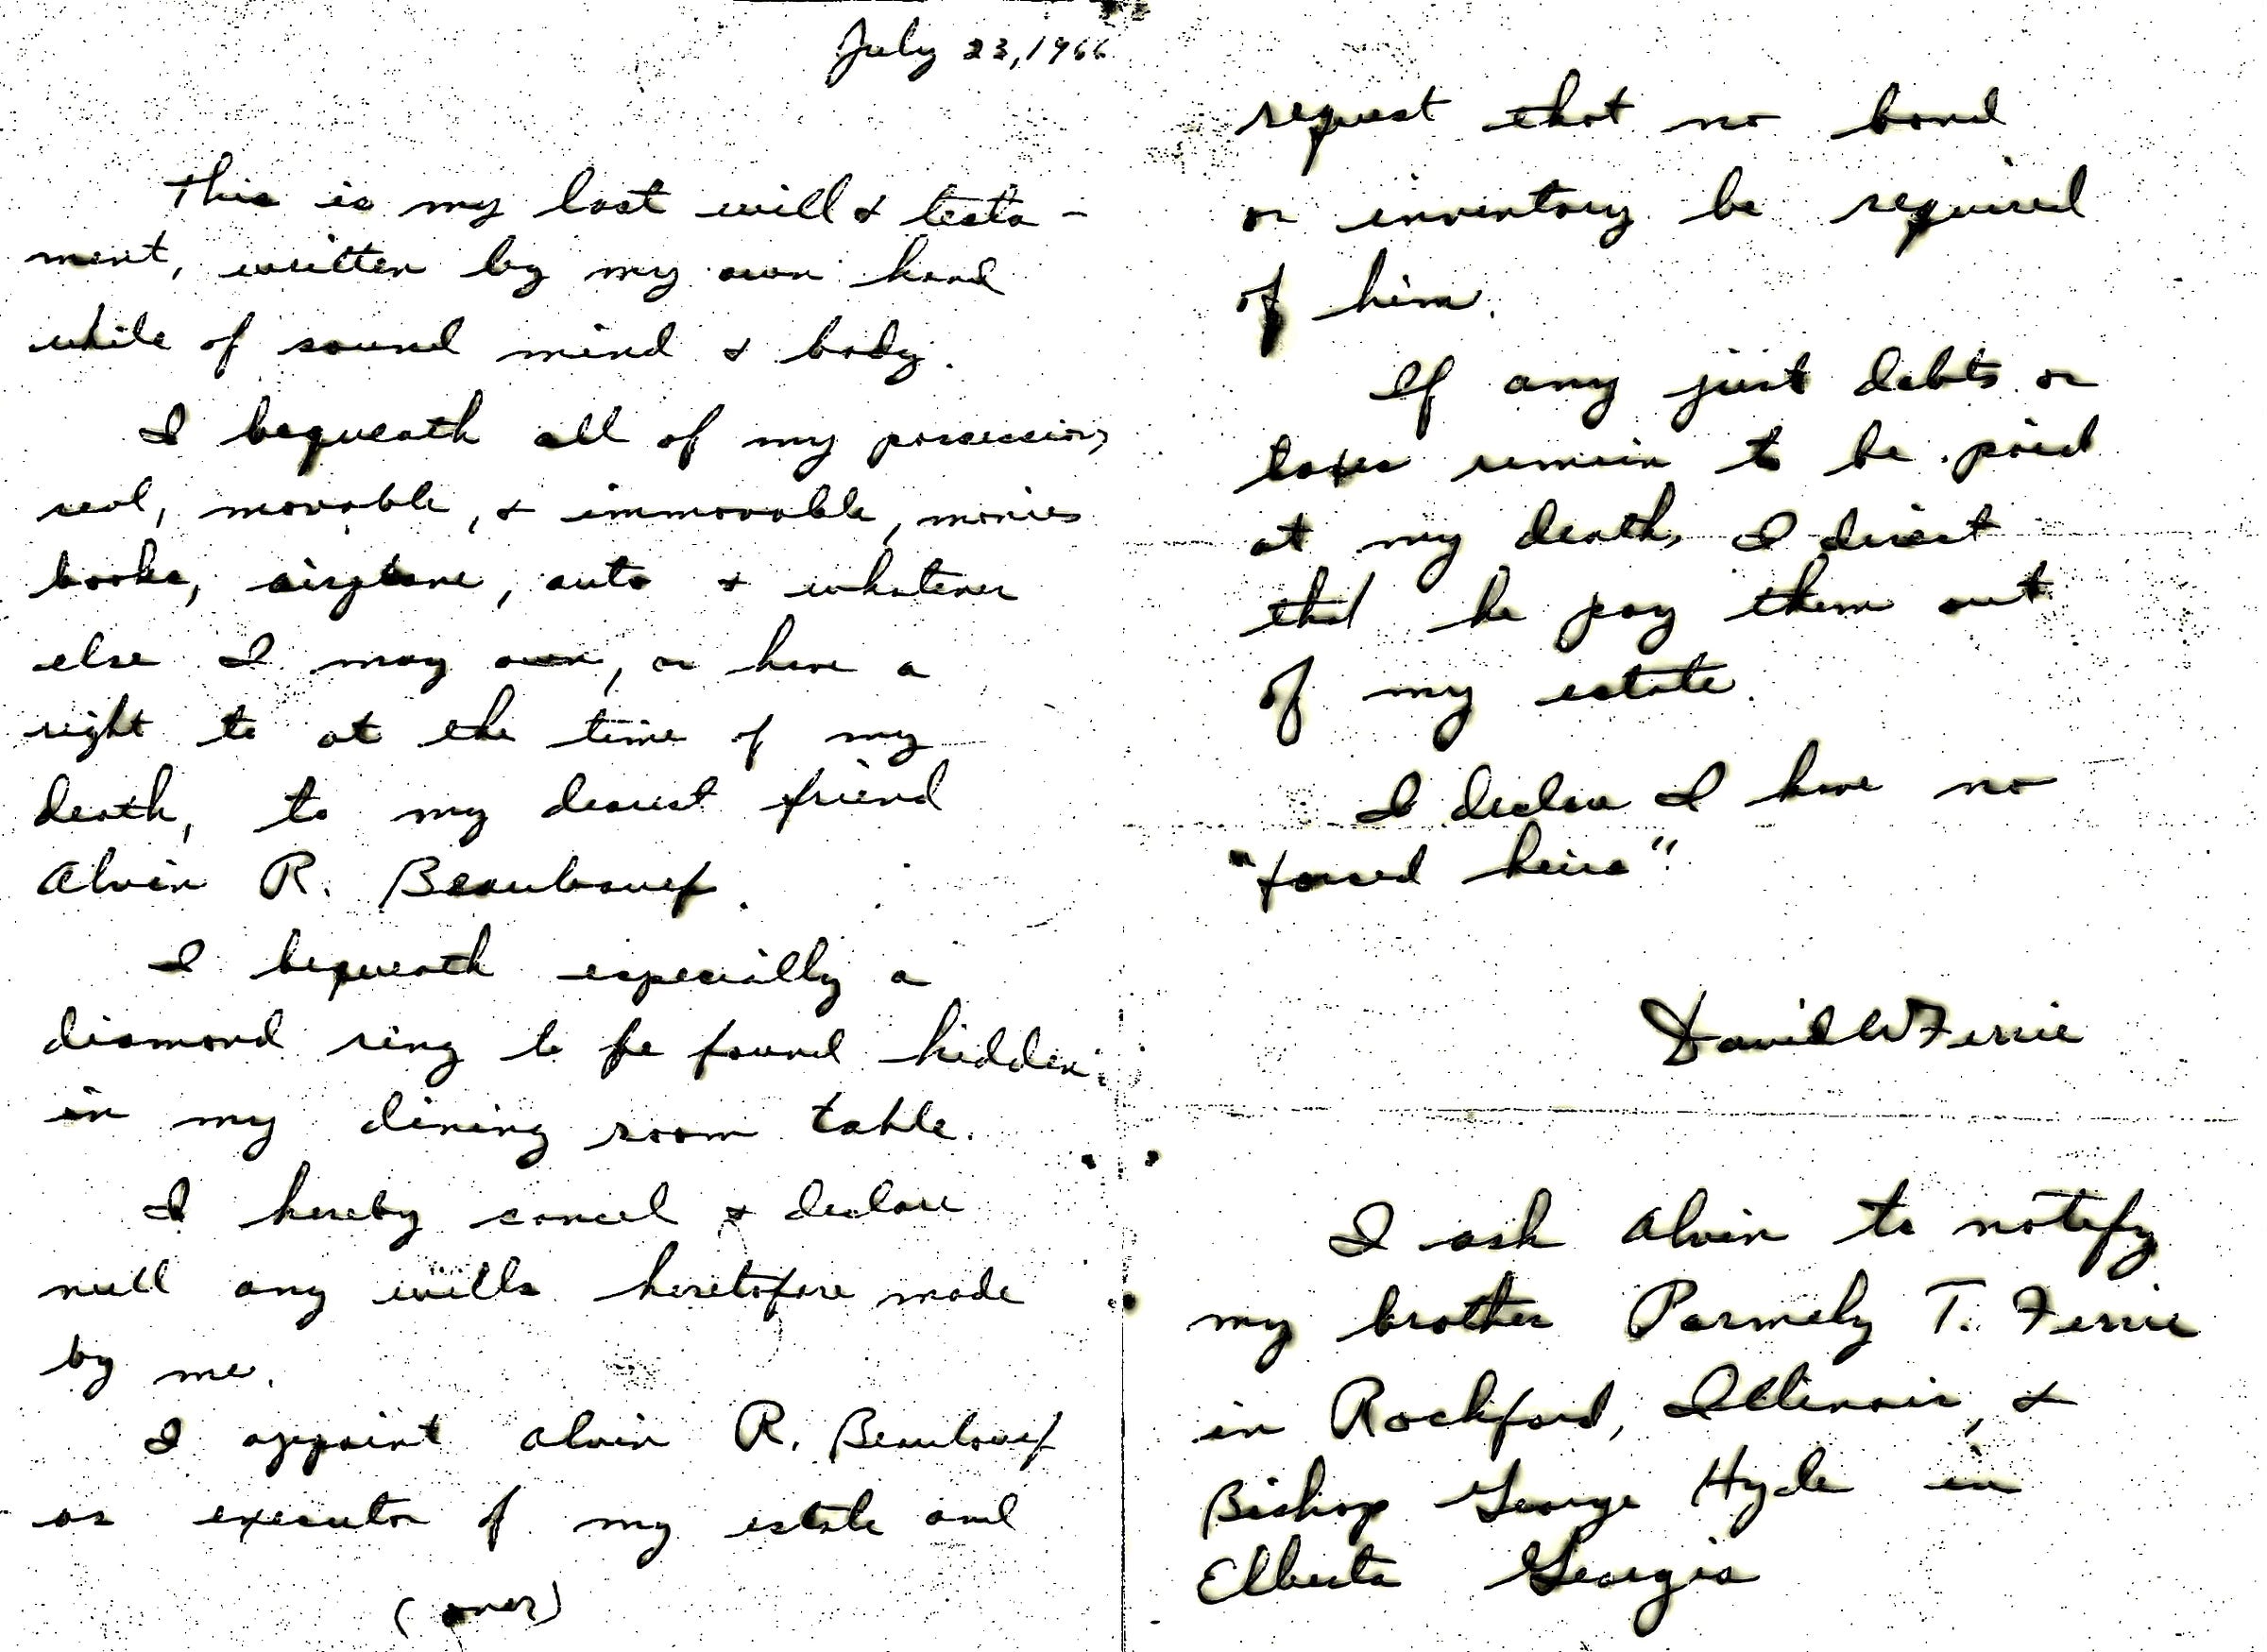 July 23, 1966
This is my last will & testa-
ment, written by my own hand
while of sound mind & body.
I bequeath all of my possessions
real, movable, & immovable, monies
books, airplane, auto & whatever
else I may own, or have a
right to at the time of my
death, to my dearest friend
Alvin R. Beaubouef.
I bequeath especially a
diamond ring to be found hidden
in my dining room table.
I hereby cancel & declare
null any wills heretofore made
by me.
I appoint Alvin R. Beaubouef
as executor of my estate and
(over)
request that no bond
or inventory be required
of him.
If any just debts or
taxes remain to be paid
at my death, I direct
that he pay them out
of my estate.
I declare I have no
"forced heirs"
David W Ferrie
I ask Alvin to notify
my brother Parmely T. Ferrie
in Rockford, Illinois, &
Bishop George Hyde in
Elberta Georgia